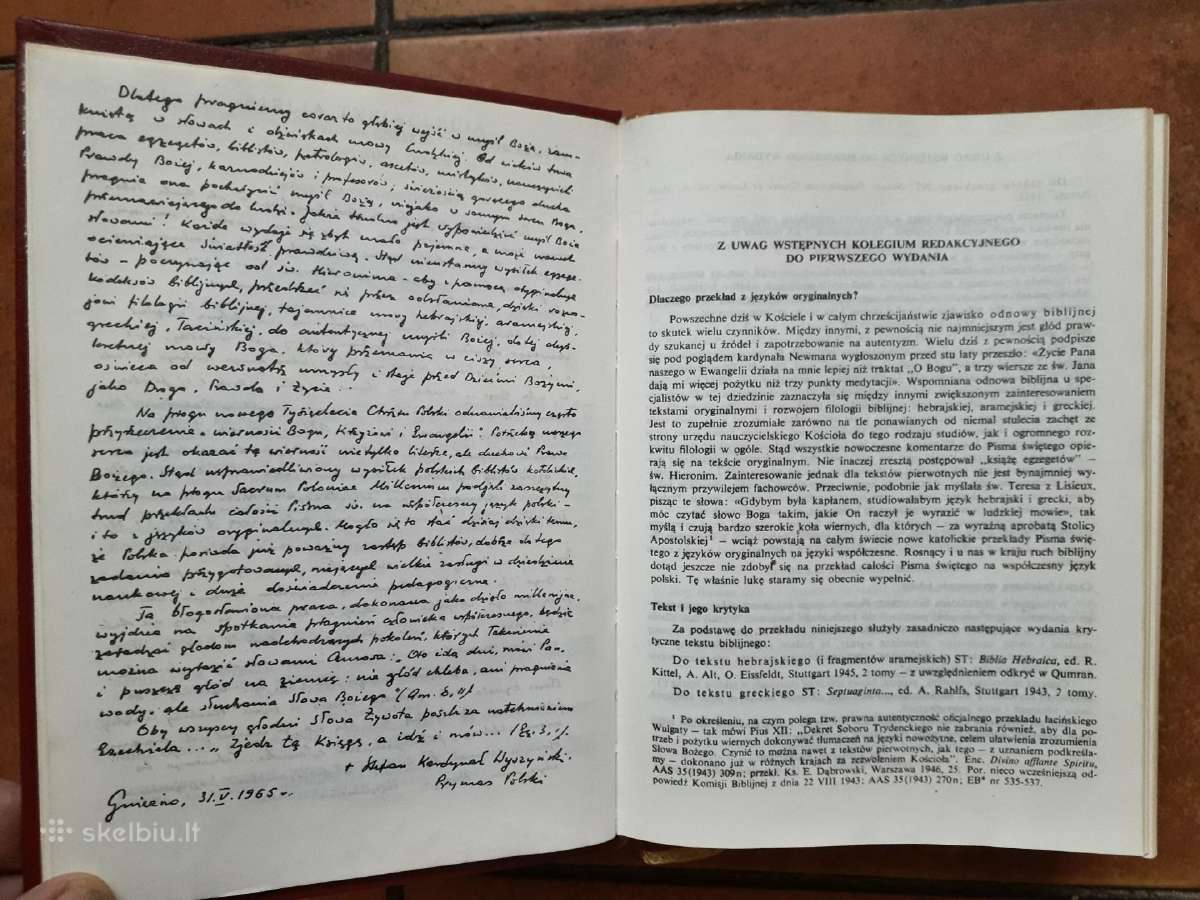 Dlatego pragniemy coraz to głębiej wejść w myśl Bożą, zam-
kniętą w słowach i dźwiękach mowy ludzkiej. Od wieków trwa
praca egzegetów, biblistów, patrologów, ascetów, mistyków, nauczycieli
Prawdy Bożej, kaznodziejów i profesorów; świeżością gorącego ducha
pragnie ona pochwycić myśl Bożą, niejako w samym sercu Boga,
przemawiającego do ludzi. Jakże trudno jest wypowiedzieć myśl Boża
słowami! Każde wydaje się zbyt mało pojemne, a może nawet
ocieniające Światłość prawdziwą. Stąd nieustanny wysiłek egzege-
tów - począwszy od św. Hieronima - aby z pomocą oryginalnych
kodeksów biblijnych, przedrzeć się przez odsłaniane, dzięki rozwo-
jowi filologii biblijnej, tajemnice mowy hebrajskiej, aramejskiej,
greckiej, łacińskiej, do autentycznej myśli Bożej, do tej
mowy Boga, który przemawia w ciszy serca,
oświeca od wewnątrz umysły i staje przed Dziećmi Bożymi,
jako Droga, Prawda i Życie...
Na progu nowego Tysiąclecia Chrztu Polski odnawialiśmy często
przyrzeczenie „wierności Bogu, Krzyżowi i Ewangelii". Potrzebą naszego
serca jest okazać tę wierność nie tylko literze, ale duchowi Prawa
Bożego. Stąd usprawiedliwiony wysiłek polskich biblistów katolickich,
którzy na progu Sacrum Poloniae Millennium podjęli zaszczytny
trud przekładu całości Pisma św. na współczesny język polski -
i to z języków oryginalnych. Mogło się to stać dzisiaj dzięki temu,
że Polska posiada już poważny zastęp biblistów, dobrze do tego
zadania przygotowanych, mających wielkie zasługi w dziedzinie
naukowej i duże doświadczenie pedagogiczne.
Ta błogosławiona praca, dokonana jako dzieło milenijne,
wyjdzie na spotkanie pragnień człowieka współczesnego, będzie
zaradzać głodom nadchodzących pokoleń, których łaknienie
można wyrazić słowami Amosa: „Oto idą dni, mówi Pan,
i puszczę głód na ziemię: nie głód chleba, ani pragnienie
wody, ale słuchania słowa Bożego" (Am. 8, 11)
Oby wszyscy głodni Słowa Żywota poszli za natchnieniem
Ezechiela... „Zjedz tę Księgę, a idź i mów..." (Ez. 3, 1).
+ Stefan Kardynał Wyszyński.
Prymas Polski
Gniezno, 31.V.1965 r.
Z UWAG WSTĘPNYCH KOLEGIUM REDAKCYJNEGO
DO PIERWSZEGO WYDANIA
Dlaczego przekład z języków oryginalnych?
Powszechne dziś w Kościele i w całym chrześcijaństwie zjawisko odnowy biblijnej
to skutek wielu czynników. Między innymi, z pewnością nie najmniejszym jest głód praw-
dy szukanej u źródeł i zapotrzebowanie na autentyzm. Wielu dziś z pewnością podpisze
się pod poglądem kardynała Newmana wygłoszonym przed stu laty przeszło: «Życie Pana
naszego w Ewangelii działa na mnie lepiej niż traktat „O Bogu", a trzy wiersze ze św. Jana
dają mi więcej pożytku niż trzy punkty medytacji». Wspomniana odnowa biblijna u spe-
cjalistów w tej dziedzinie zaznaczyła się między innymi zwiększonym zainteresowaniem
tekstami oryginalnymi i rozwojem filologii biblijnej: hebrajskiej, aramejskiej i greckiej.
Jest to zupełnie zrozumiałe zarówno na tle ponawianych od niemal stulecia zachęt ze
strony urzędu nauczycielskiego Kościoła do tego rodzaju studiów, jak i ogromnego roz-
kwitu filologii w ogóle. Stąd wszystkie nowoczesne komentarze do Pisma świętego opie-
rają się na tekście oryginalnym. Nie inaczej zresztą postępował „książę egzegetów" –
św. Hieronim. Zainteresowanie jednak dla tekstów pierwotnych nie jest bynajmniej wy-
łącznym przywilejem fachowców. Przeciwnie, podobnie jak myślała św. Teresa z Lisieux,
pisząc te słowa: «Gdybym była kapłanem, studiowałabym język hebrajski i grecki, aby
móc czytać słowo Boga takim, jakie On raczył je wyrazić w ludzkiej mowie», tak
myślą i czują bardzo szerokie koła wiernych, dla których – za wyraźną aprobatą Stolicy
Apostolskiej¹ – wciąż powstają na całym świecie nowe katolickie przekłady Pisma świę-
tego z języków oryginalnych na języki współczesne. Rosnący i u nas w kraju ruch biblijny
dotąd jeszcze nie zdobył się na przekład całości Pisma świętego na współczesny język
polski. Tę właśnie lukę staramy się obecnie wypełnić.
Tekst i jego krytyka
Za podstawę do przekładu niniejszego służyły zasadniczo następujące wydania kry-
tyczne tekstu biblijnego:
Do tekstu hebrajskiego (i fragmentów aramejskich) ST: Biblia Hebraica, ed. R.
Kittel, A. Alt, O. Eissfeldt, Stuttgart 1945, 2 tomy – z uwzględnieniem odkryć w Qumran.
Do tekstu greckiego ST: Septuaginta..., ed. A. Rahlfs, Stuttgart 1943, 2 tomy.
¹ Po określeniu, na czym polega tzw. prawna autentyczność oficjalnego przekładu łacińskiego
Wulgaty – tak mówi Pius XII: „Dekret Soboru Trydenckiego nie zabrania również, aby dla po-
trzeb i pożytku wiernych dokonywać tłumaczeń na języki nowożytne, celem ułatwienia zrozumienia
Słowa Bożego. Czynić to można nawet z tekstów pierwotnych, jak tego – z uznaniem podkreśla-
my – dokonano już w różnych krajach za zezwoleniem Kościoła". Enc. Divino afflante Spiritu,
AAS 35(1943) 309n; przekł. Ks. E. Dąbrowski, Warszawa 1946, 25. Por. nieco wcześniejszą od-
powiedź Komisji Biblijnej z dnia 22 VIII 1943: AAS 35 (1943) 270n; EB⁴ nr 535-537.
skelbiu.lt